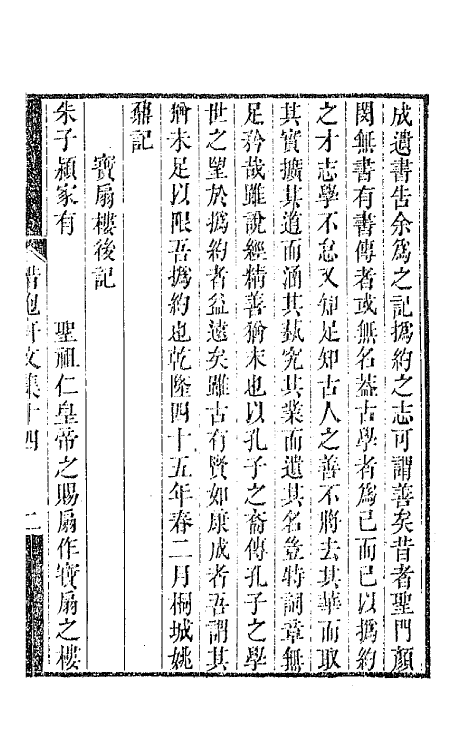 成遺書告余爲之記撝約之志可謂善矣昔者聖門顏
閔無書有書傳者或無名葢古學者爲己而已以撝約
之才志學不怠又知足知古人之善不將去其華而取
其實擴其道而涵其蓺究其業而遺其名豈特詞章無
足矜哉雖說經精善猶末也以孔子之裔傳孔子之學
世之望於撝約者益遠矣雖古有賢如康成者吾謂其
猶未足以限吾撝約也乾隆四十五年春二月桐城姚
鼐記
寶扇樓後記
朱子潁家有　聖祖仁皇帝之賜扇作寶扇之樓
惜抱軒文集十四　二